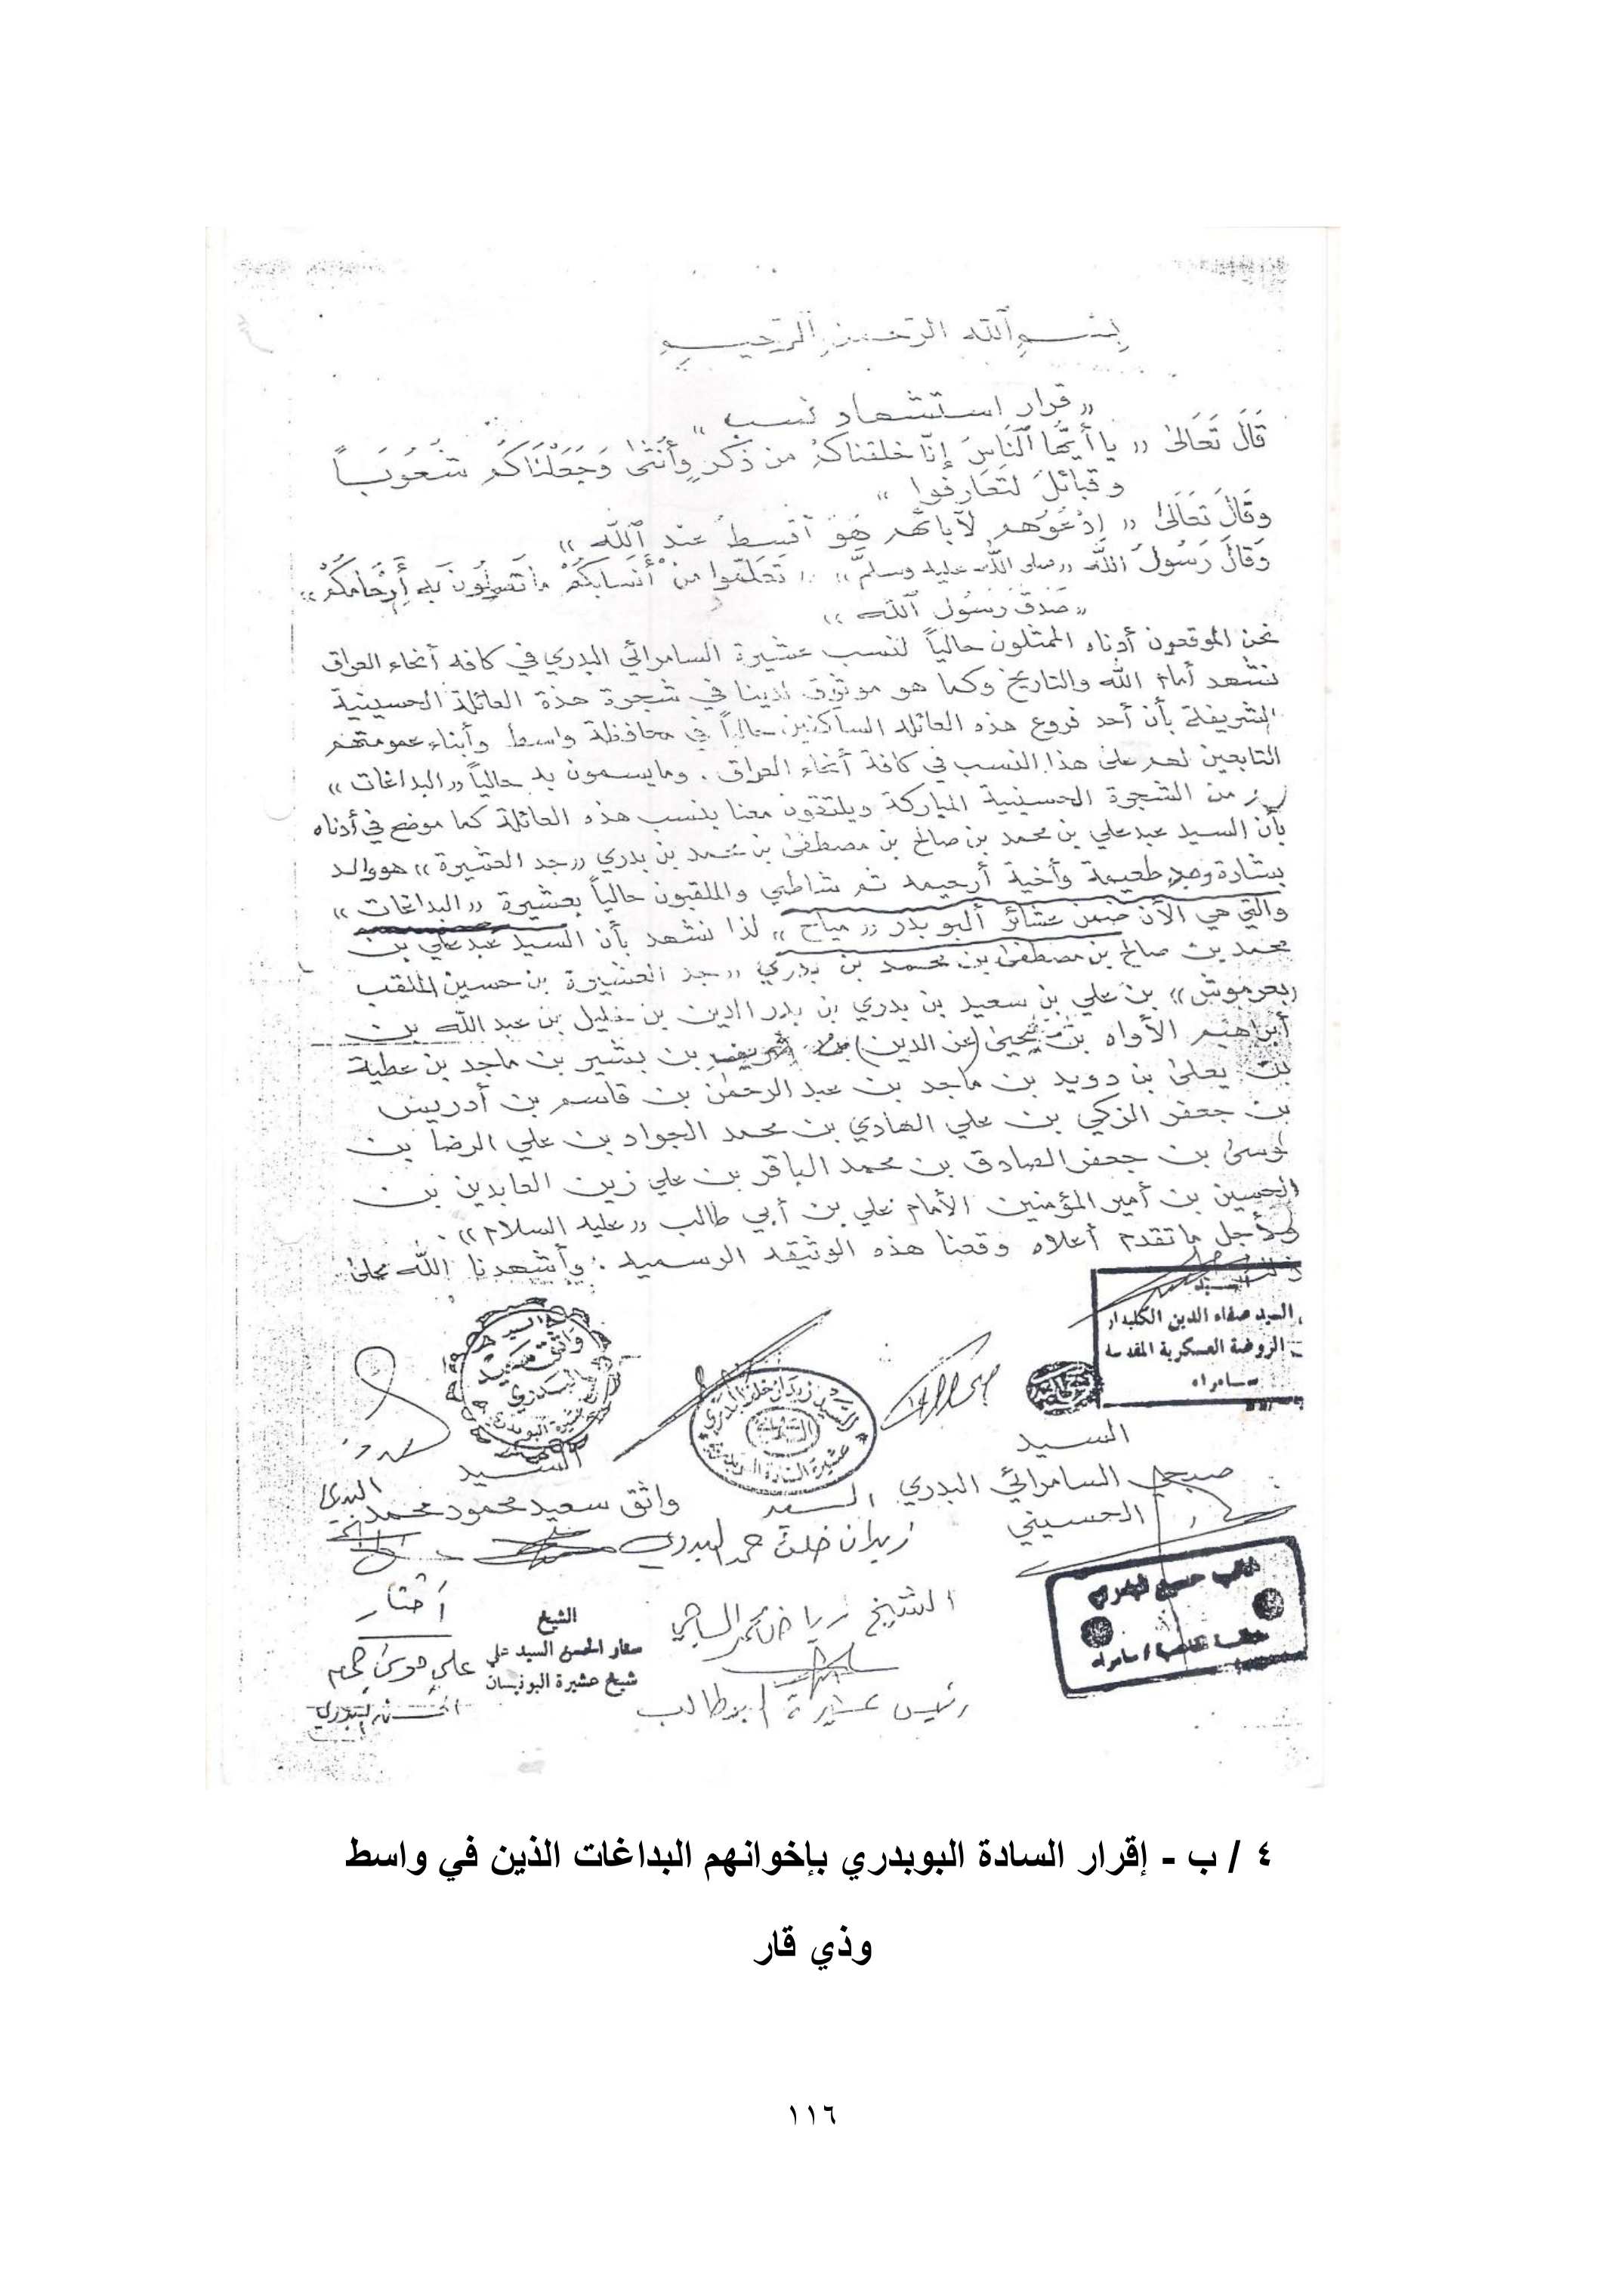 بسم الله الرحمن الرحيم
" قرار استشهاد نسب "
قال تعالى " يا أيها الناس إنا خلقناكم من ذكر وأنثى وجعلناكم شعوباً
وقبائل لتعارفوا "
وقال تعالى " ادعوهم لآبائهم هو أقسط عند الله "
وقال رسول الله " صلى الله عليه وسلم " " تعلموا من أنسابكم ما تصلون به أرحامكم "
" صدق رسول الله "
نحن الموقعون أدناه الممثلون حالياً لنسب عشيرة السامرائي البدري في كافه أنحاء العراق
نشهد أمام الله والتاريخ وكما هو موثوق لدينا في شجرة هذة العائلة الحسينية
الشريفة بأن أحد فروع هذه العائله الساكنين حالياً في محافظة واسط وأبناء عمومتهم
التابعين لهم على هذا النسب في كافة أنحاء العراق . ومايسمون به حالياً " البداغات "
من الشجرة الحسينية المباركة ويلتقون معنا بنسب هذه العائلة كما موضح في أدناه
بأن السيد عبد علي بن محمد بن صالح بن مصطفى بن محمد بن بدري " جد العشيرة " هو والد
بشارة وجد طعيمة وأخية أرحيمه ثم شاطي والملقبون حالياً بعشيرة " البداغات "
والتي هي الآن ضمن عشائر ألبو بدر " مياح " لذا نشهد بأن السيد عبد علي بن
محمد بن صالح بن مصطفى بن محمد بن بدري " جد العشيرة بن حسين الملقب
بعرموش " بن علي بن سعيد بن بدري بن بدر الدين بن خليل بن عبد الله بن
أبراهيم الأواه بن يحيى (عز الدين) بن شريف بن بشير بن ماجد بن عطية
بن يعلى بن دويد بن ماجد بن عبد الرحمن بن قاسم بن أدريس
بن جعفر الزكي بن علي الهادي بن محمد الجواد بن علي الرضا بن
موسى بن جعفر الصادق بن محمد الباقر بن علي زين العابدين بن
الحسين بن أمير المؤمنين الأمام علي بن أبي طالب " عليه السلام " .
ولأجل ماتقدم أعلاه وقعنا هذه الوثيقه الرسميه . وأشهدنا الله على
ذلك
السيد صفاء الدين الكليدار
الروضة العسكرية المقدسه
سامراء
السيد
صبحي السامرائي البدري
الحسيني
السيد زيدان خلف البدري
السيد
زيدان خلف حمد البدري
واثق سعيد
البدري
السيد
واثق سعيد محمود محمد البدري
حسين البدري
سامراء
الشيخ رياض
رئيس عشيرة البوطالب
الشيخ
السيد علي
شيخ عشيرة البونيسان
علي موسى
البدري
٤ / ب - إقرار السادة البوبدري بإخوانهم البداغات الذين في واسط
وذي قار
١١٦